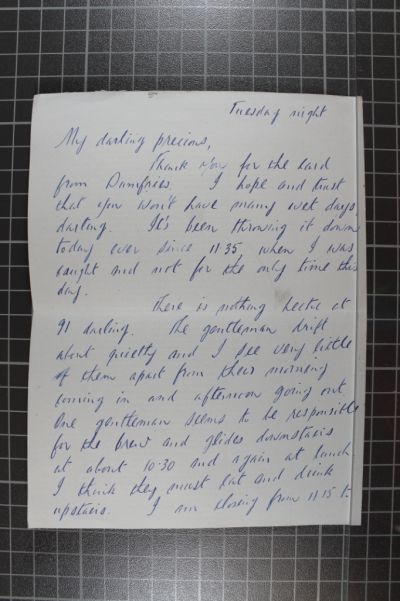 Tuesday night
My darling precious,
Thank you for the card
from Dumfries. I hope and trust
that you won't have many wet days,
darling. It's been throwing it down
today ever since 11.35, when I was
caught and not for the only time this
day.
There is nothing hectic at
91 darling. The gentlemen drift
about quietly and I see very little
of them apart from their morning
coming in and afternoon going out.
One gentleman seems to be responsible
for the brew and glides downstairs
at about 10.30 and again at lunch.
I think they must eat and drink
upstairs. I am closing from 11.15 to